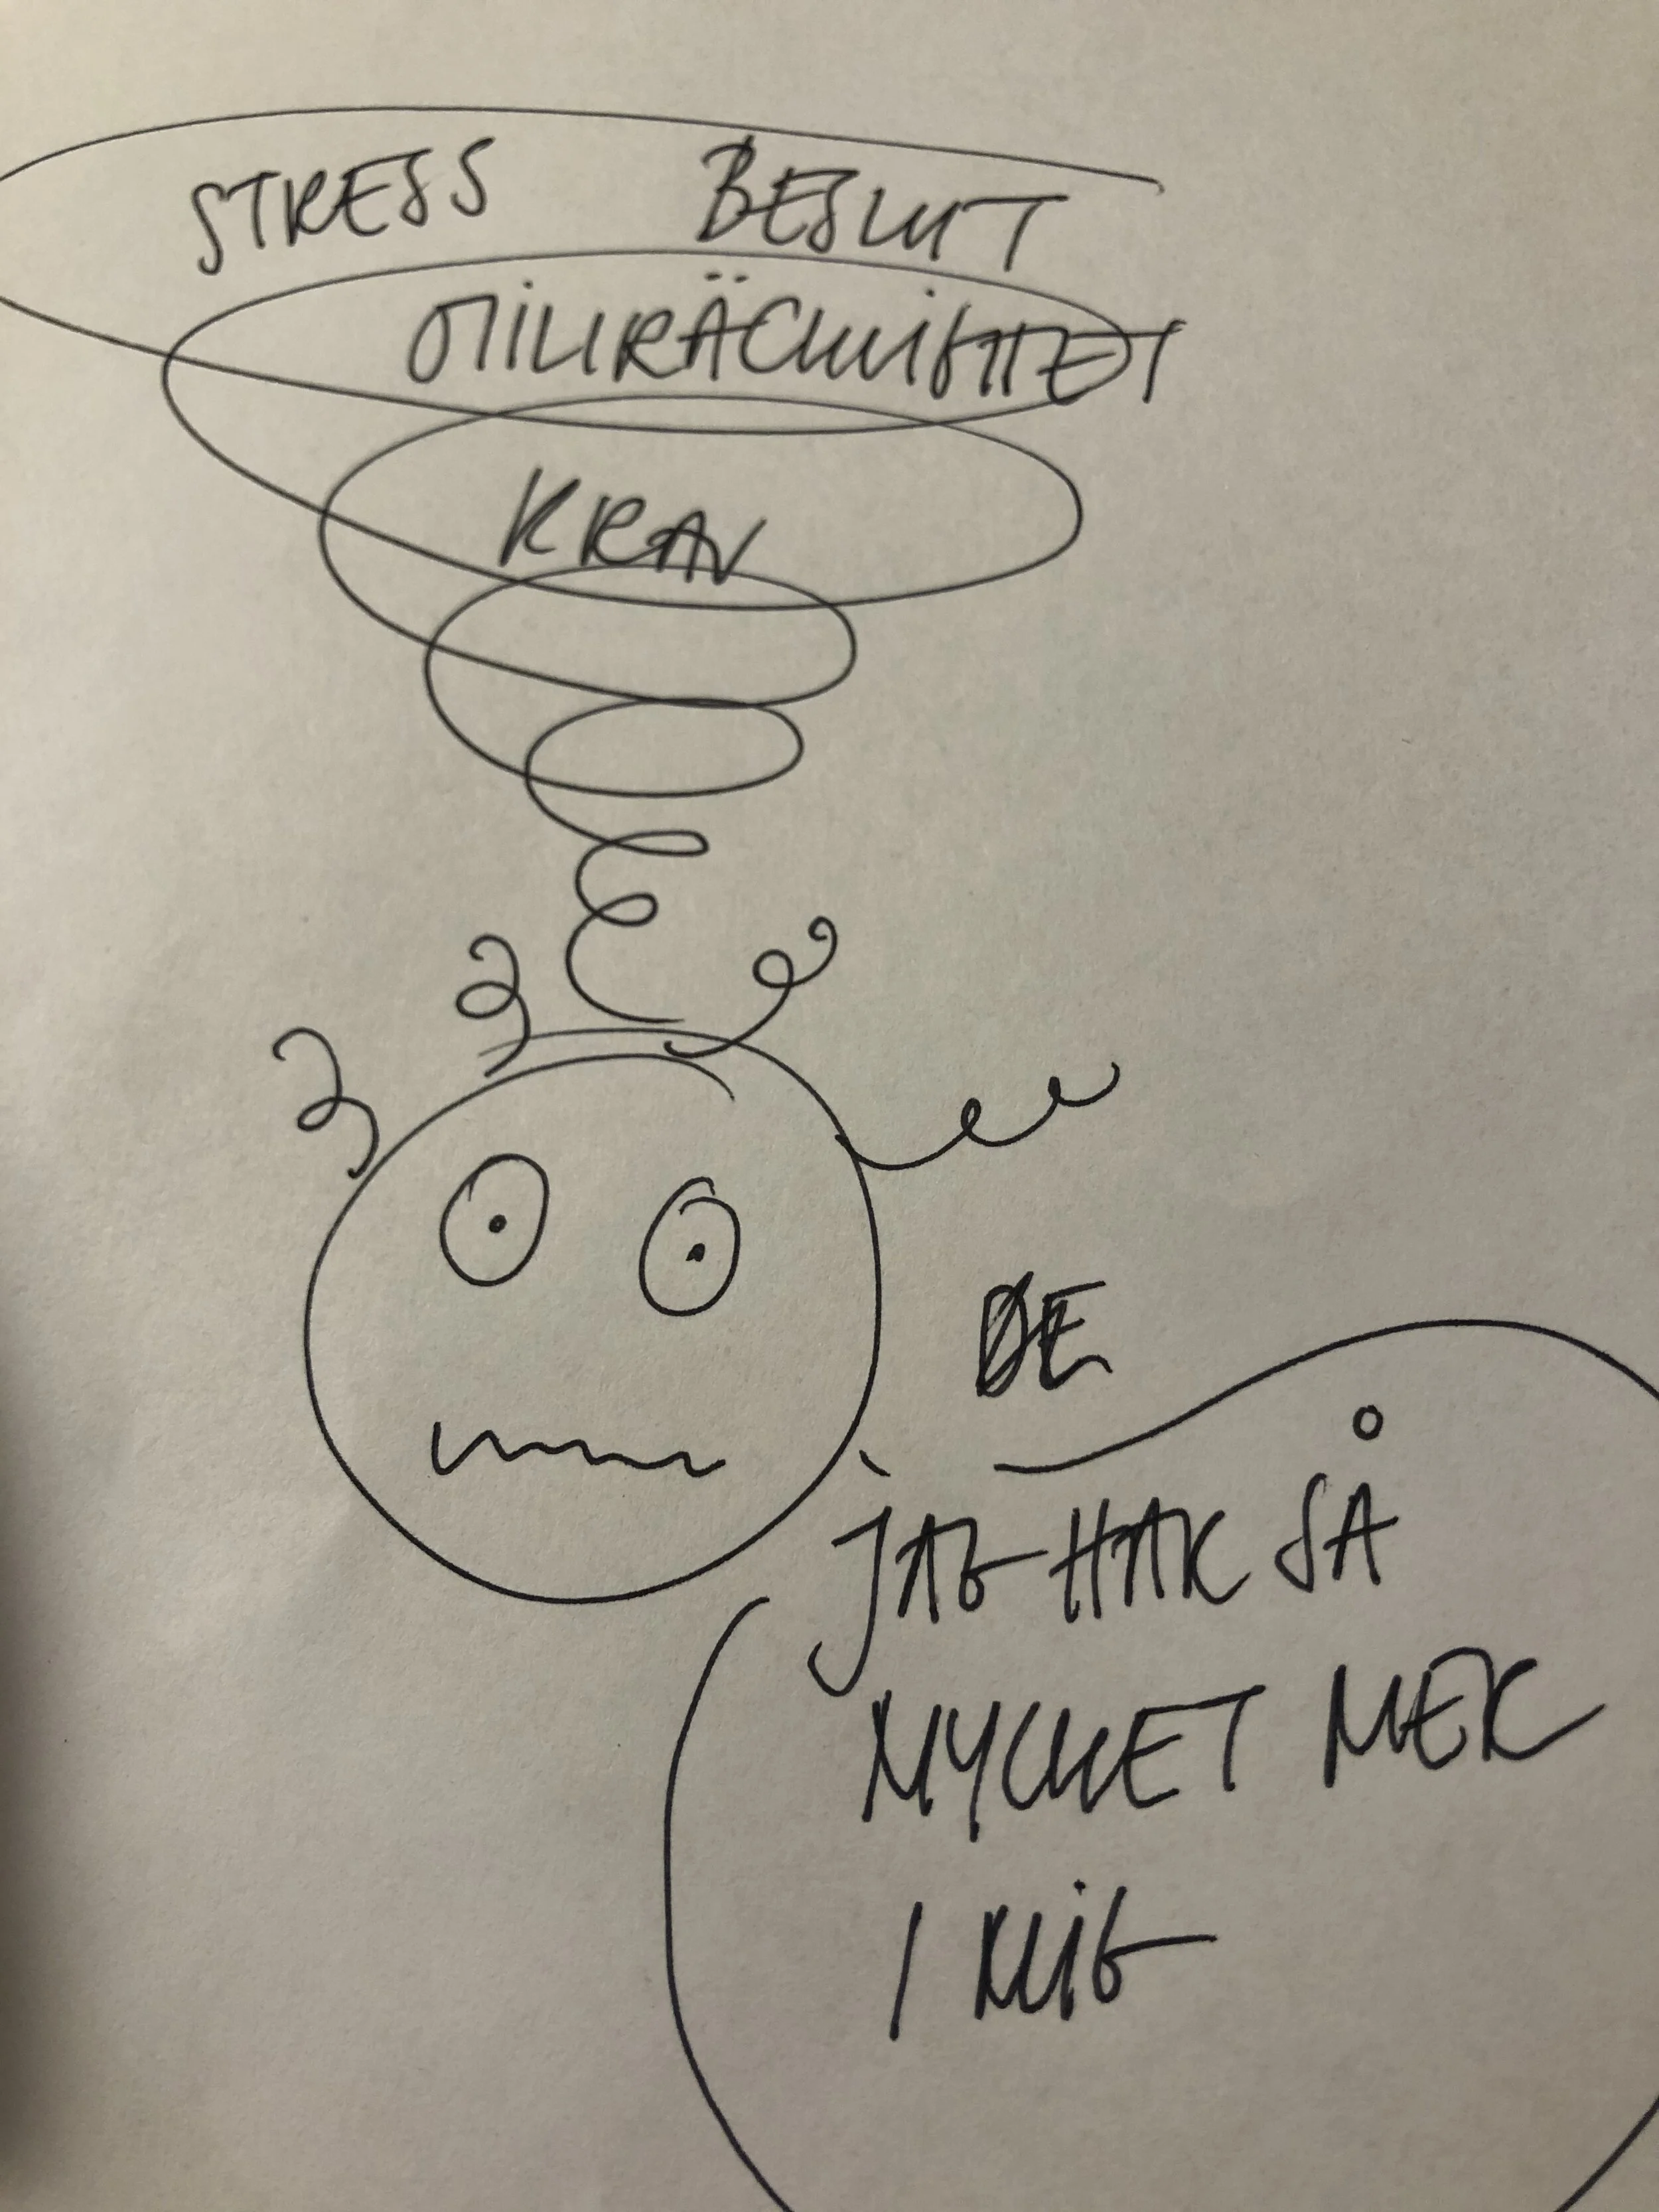 STRESS BESLUT
OTILLRÄCKLIGHET
KRAV
DE
JAG HAR SÅ
MYCKET MER
I MIG